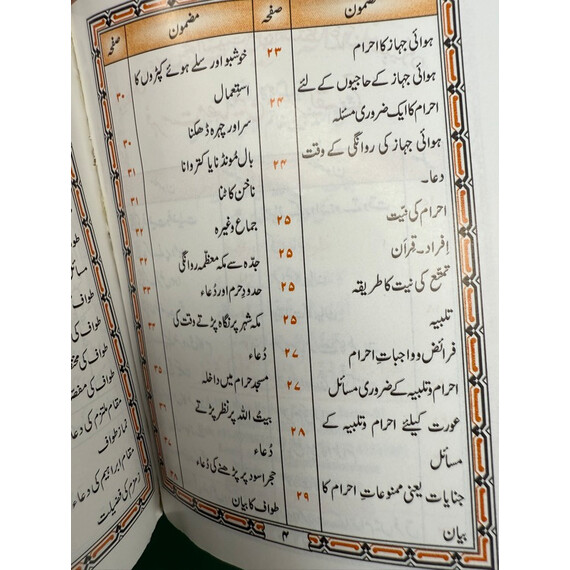 مضمون صفحہ
ہوائی جہاز کا احرام ۲۳
ہوائی جہاز کے حاجیوں کے لئے
احرام کا ایک ضروری مسئلہ ۲۴
ہوائی جہاز کی روانگی کے وقت
دعا۔ ۲۴
احرام کی نیت ۲۵
افراد۔ قران ۲۵
تمتع کی نیت کا طریقہ ۲۵
تلبیہ ۲۵
فرائض و واجبات احرام ۲۷
احرام و تلبیہ کے ضروری مسائل ۲۷
عورت کیلئے احرام و تلبیہ کے
مسائل ۲۸
جنایات یعنی ممنوعات احرام کا
بیان ۲۹
مضمون صفحہ
خوشبو اور سلے ہوئے کپڑوں کا
استعمال ۳۰
سر اور چہرہ ڈھکنا ۳۰
بال مُونڈنا یا کتروانا ۳۱
ناخن کاٹنا ۳۱
جماع وغیرہ
جدّہ سے مکہ معظمہ روانگی
حدودِ حرم اور دُعاء
مکہ شہر پر نگاہ پڑتے وقت کی
دُعاء
مسجد حرام میں داخلہ
بیتُ اللہ پر نظر پڑتے
دُعاء
حجر اسود پر پڑھنے کی دُعاء
طواف کا بیان
۴
طواف
مسائل
طواف کی
طواف کی
طواف کی
مقام ملتزم کی دعاء
نماز طواف
مقام ابراہیم کی دعاء
زمزم کی فضیلت